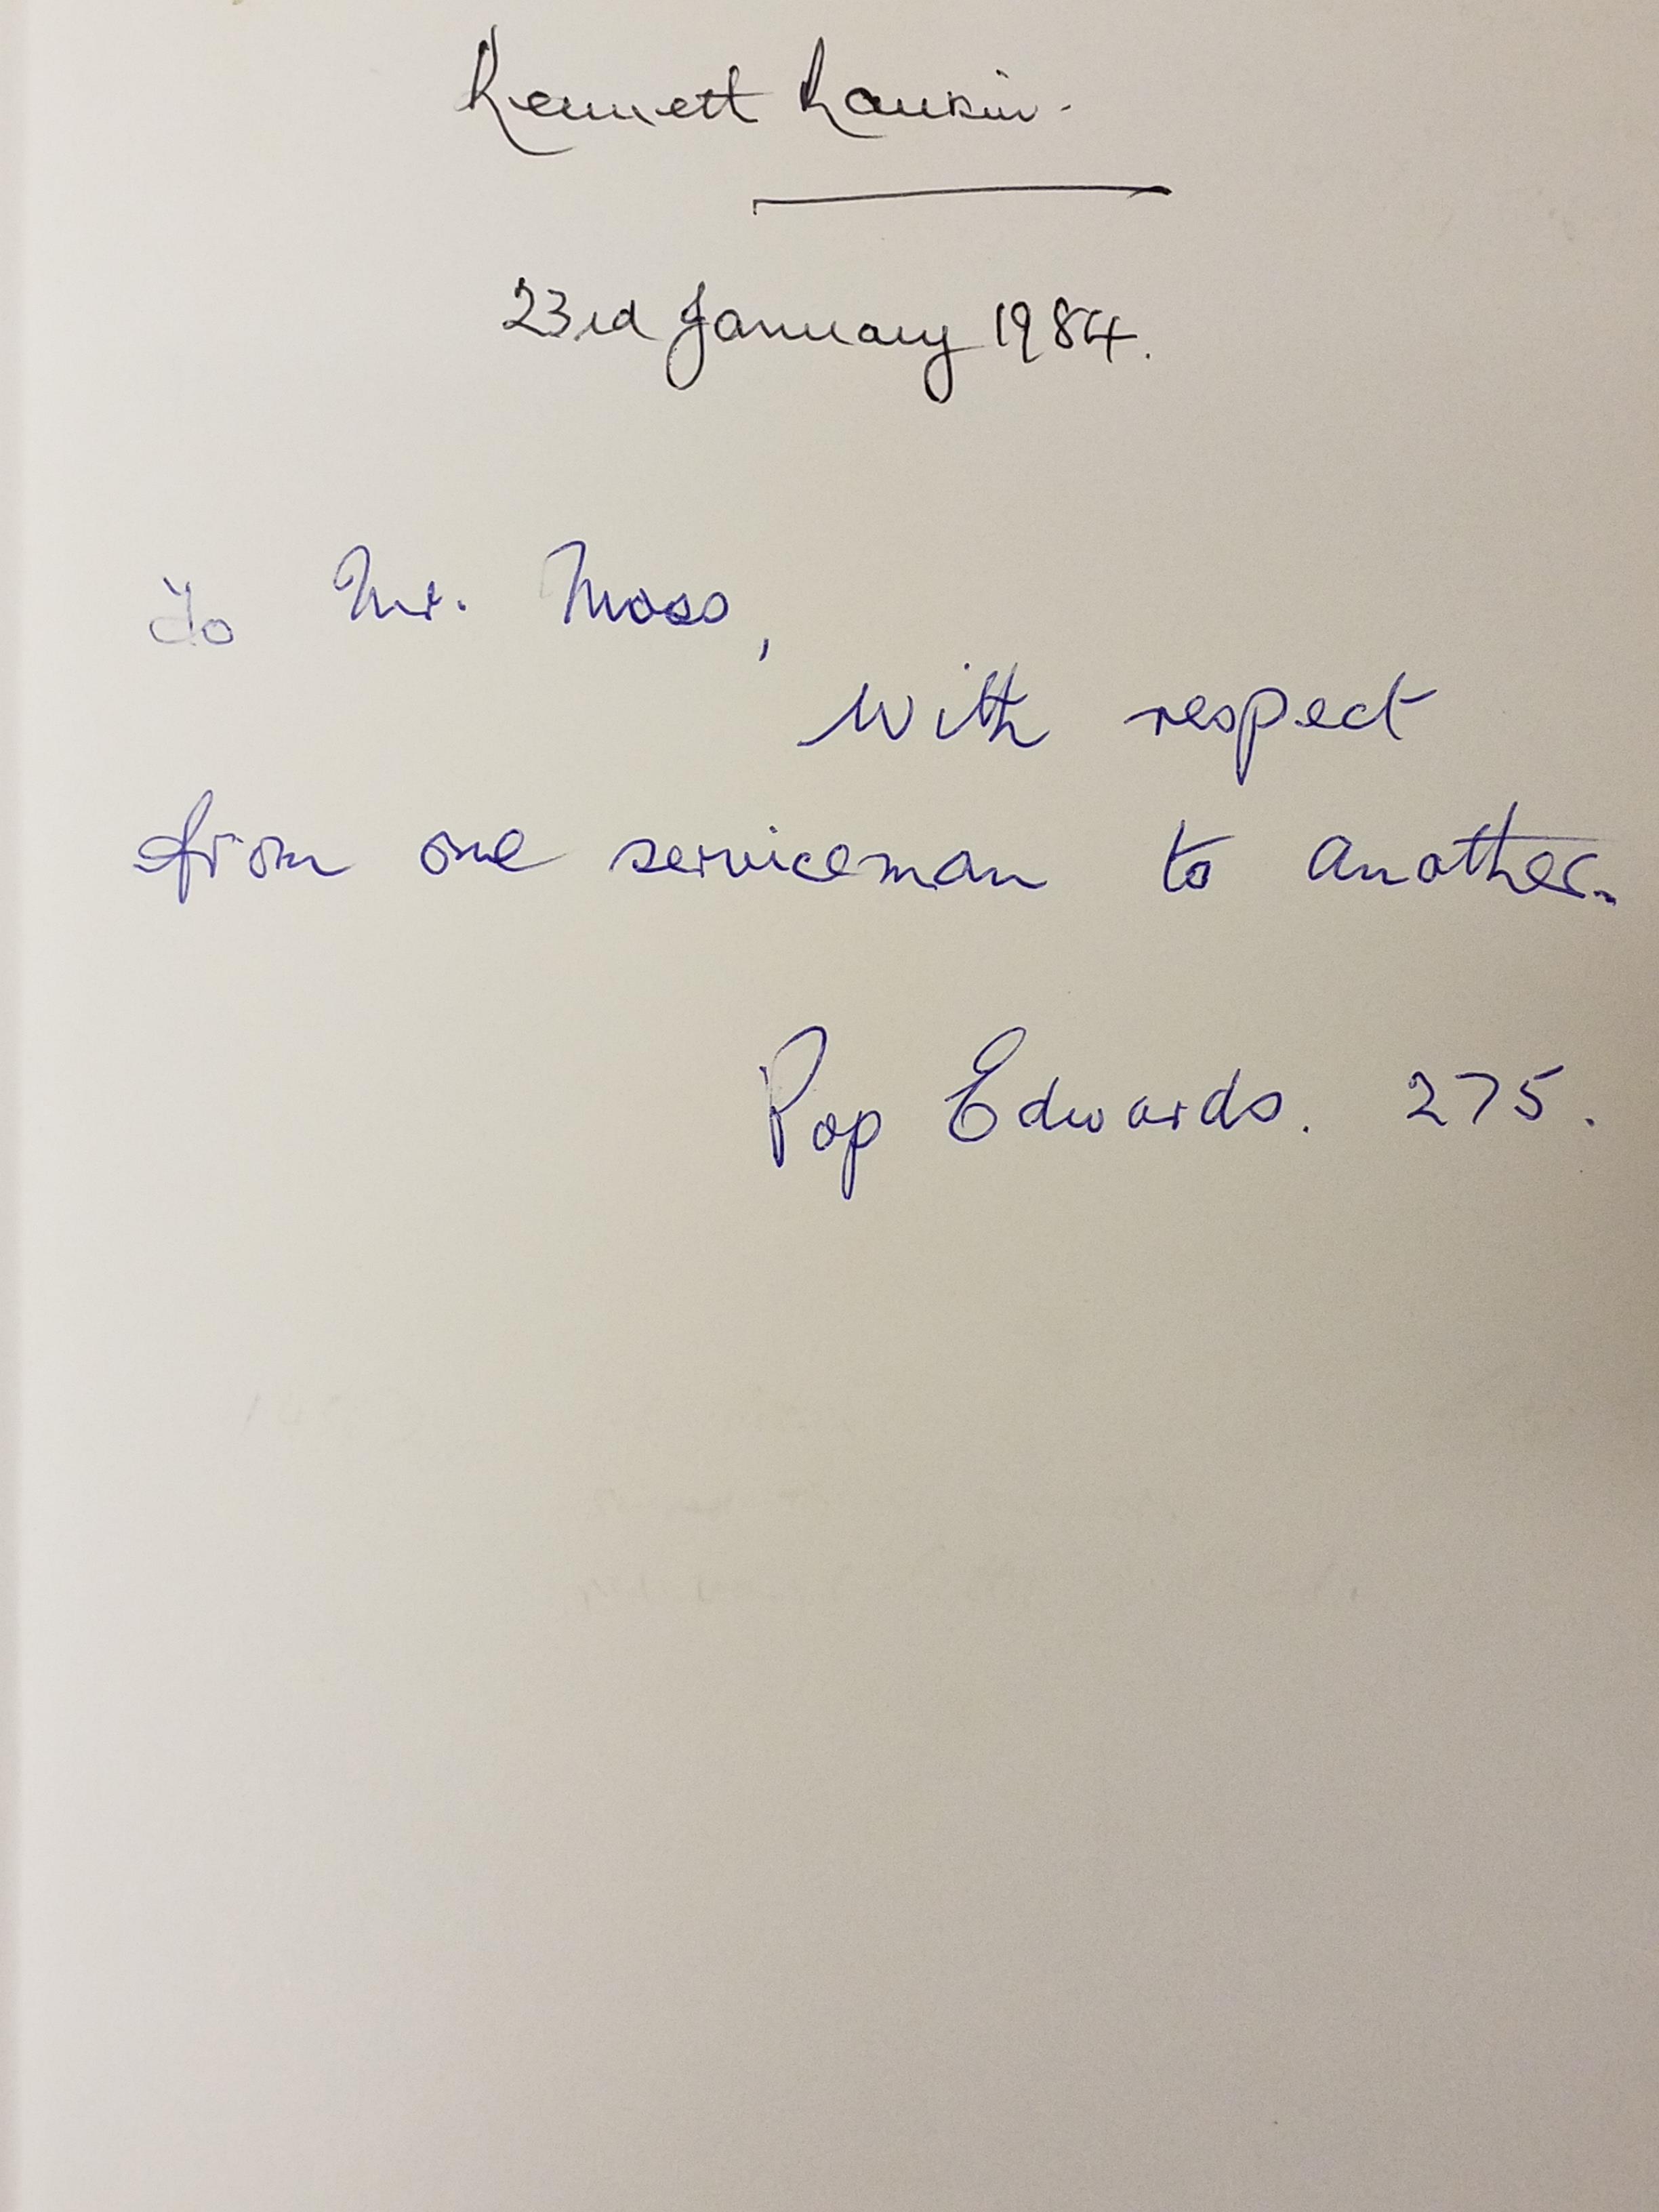 Kennett Rankin.
23rd January 1984.
To Mr. Moss,
with respect
from one serviceman to another.
Pop Edwards. 275.